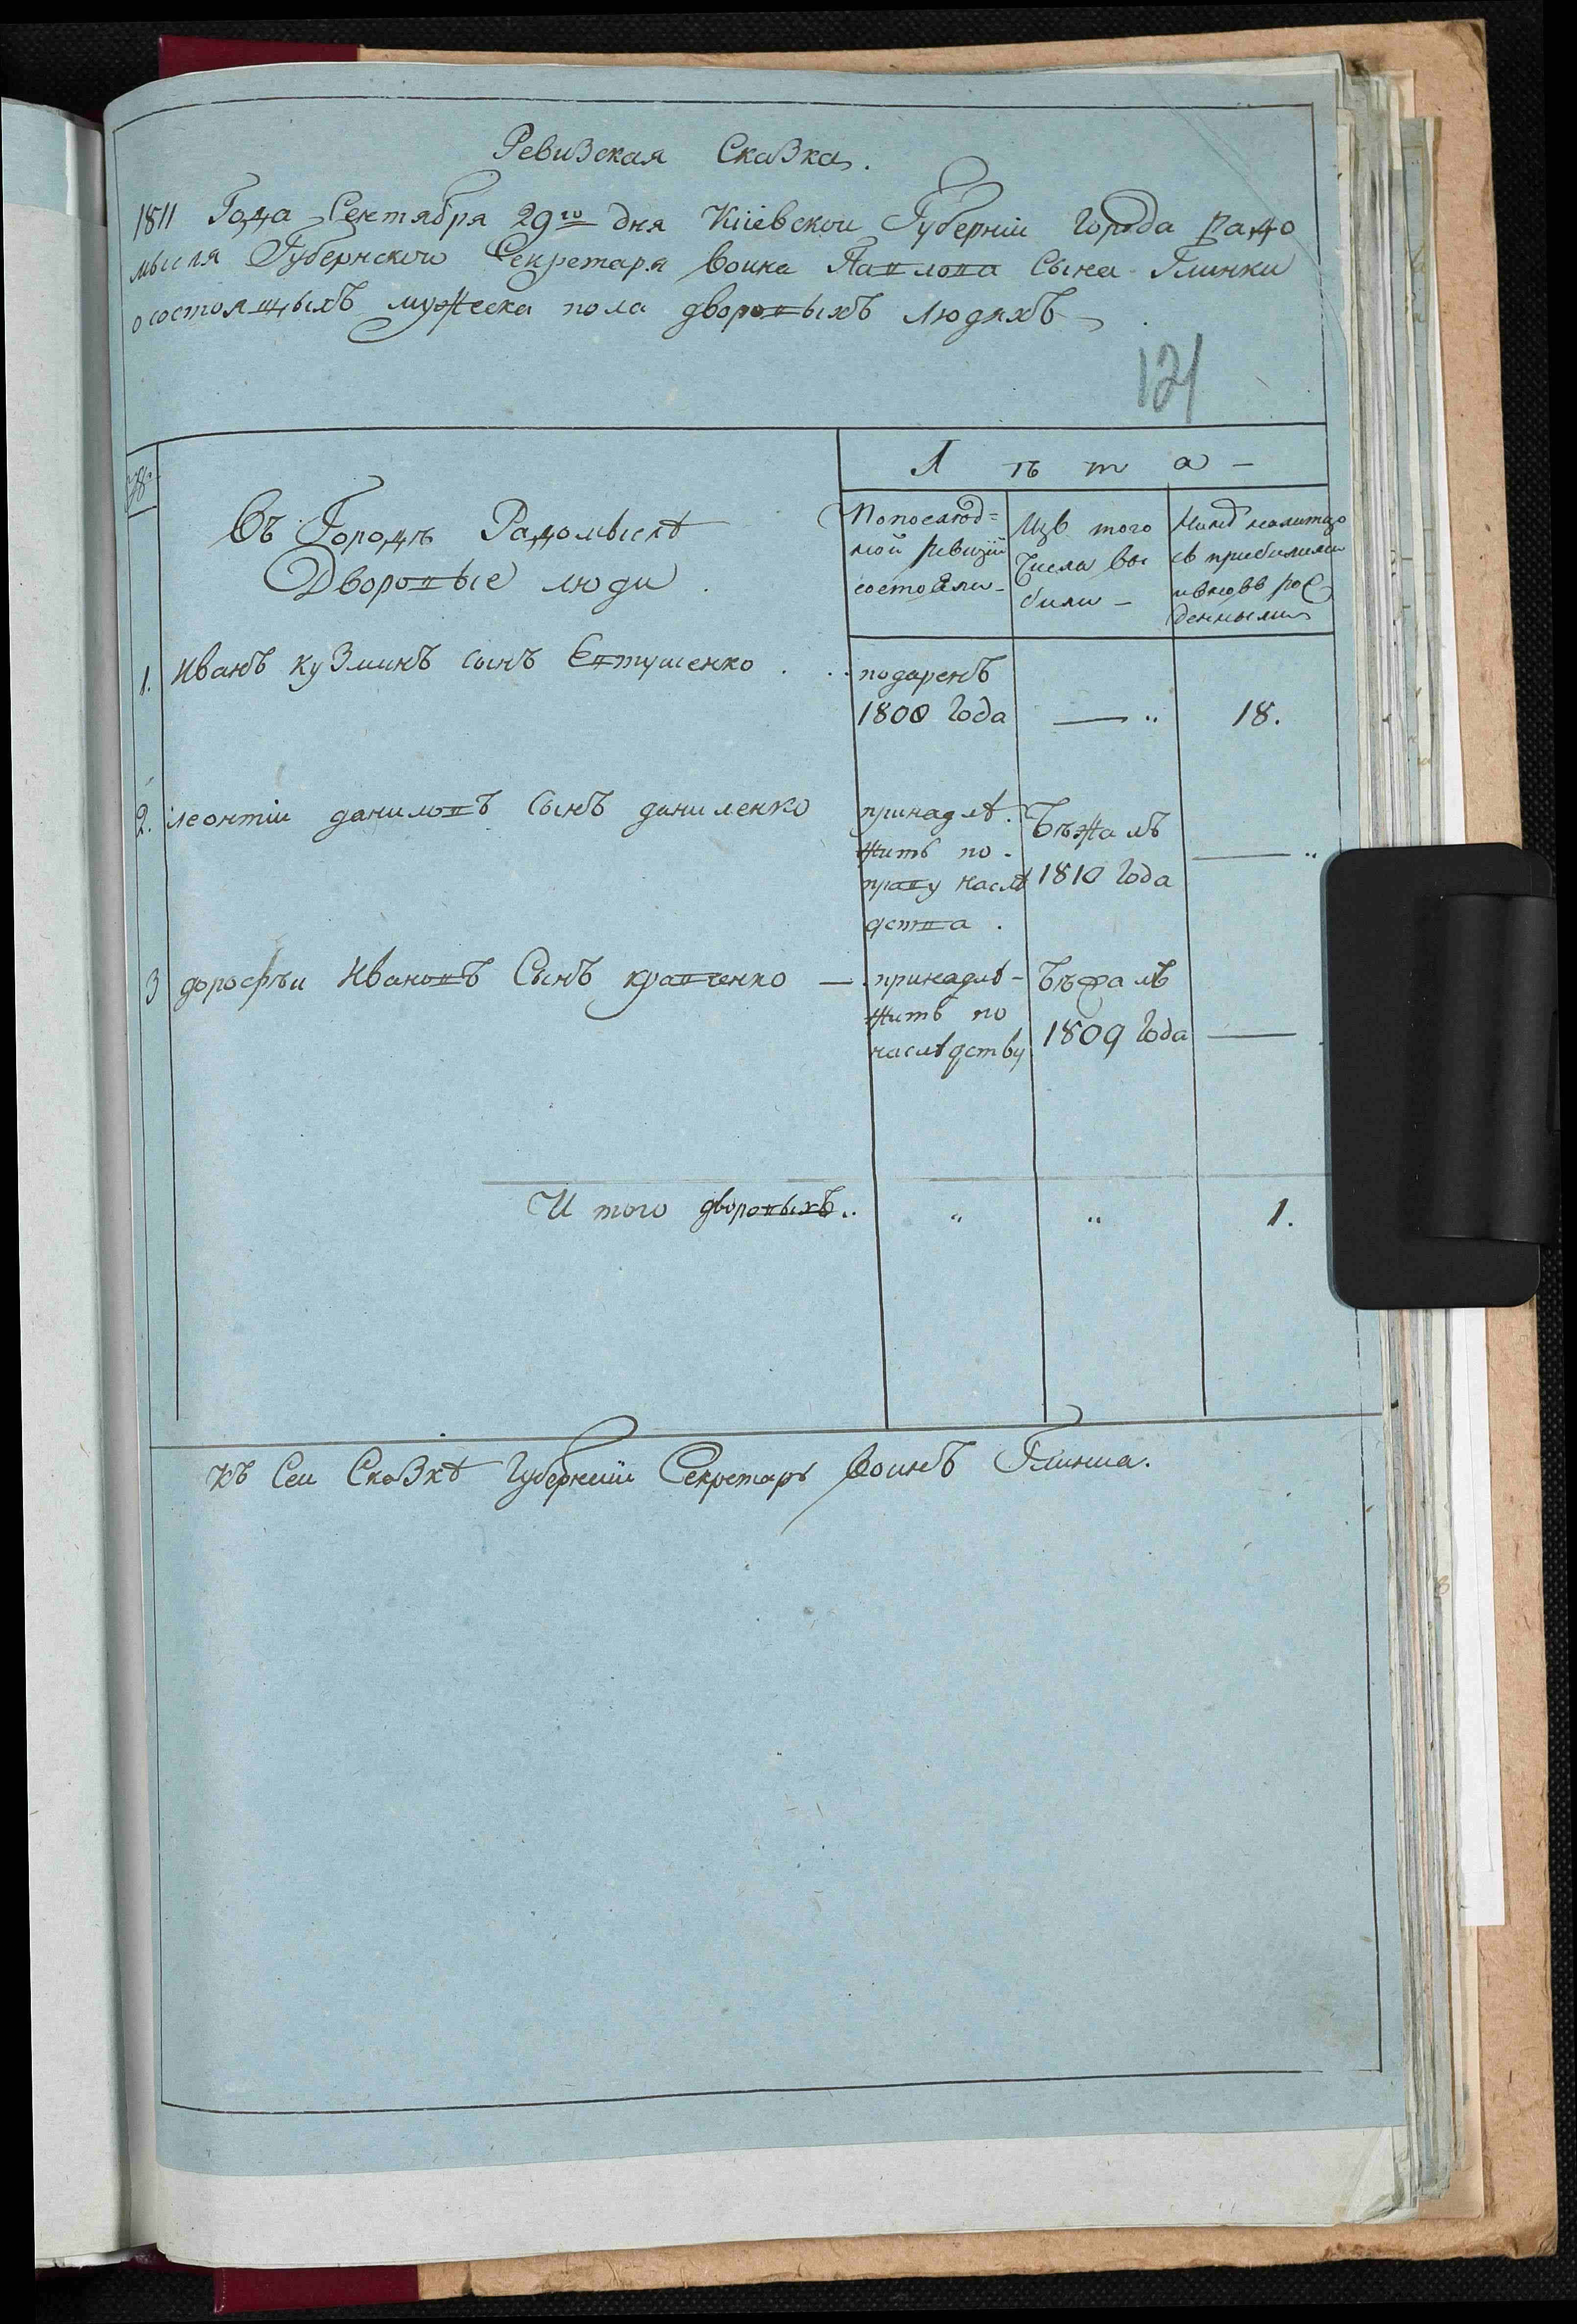 Ревизская Сказка.
1811 Года Сентября 29го дня Кіевскои Губерніи Города Радо
мысля Губернского Секретаря Воина Павлова Сына Глинки
о состоящыхъ мужеска пола дворовыхъ людяхъ
121
№
Лѣта
Въ Городѣ Радомыслѣ
Дворовые люди
По послѣд=
ной ревизіи
состояли
Изъ того
Числа вы
били
Нынѣ налитцо
съ прибилими
и вновь рож
денными
1. Иванъ Кузминъ сынъ Евтушенко
подаренъ
1800 Года — „ 18.
2. леонтіи даниловъ Сынъ даниленко
принадлѣ
житъ по
праву наслѣ
дства.
Бѣжалъ
1810 Года — „
3 дорофѣи Ивановъ Сынъ кравченко —
принадлѣ-
житъ по
наслѣдству
Бѣжалъ
1809 Года —
И того дворовыхъ.. „ „ 1.
Къ Сеи Сказкѣ Губернскіи Секретарь Воинъ Глинка.